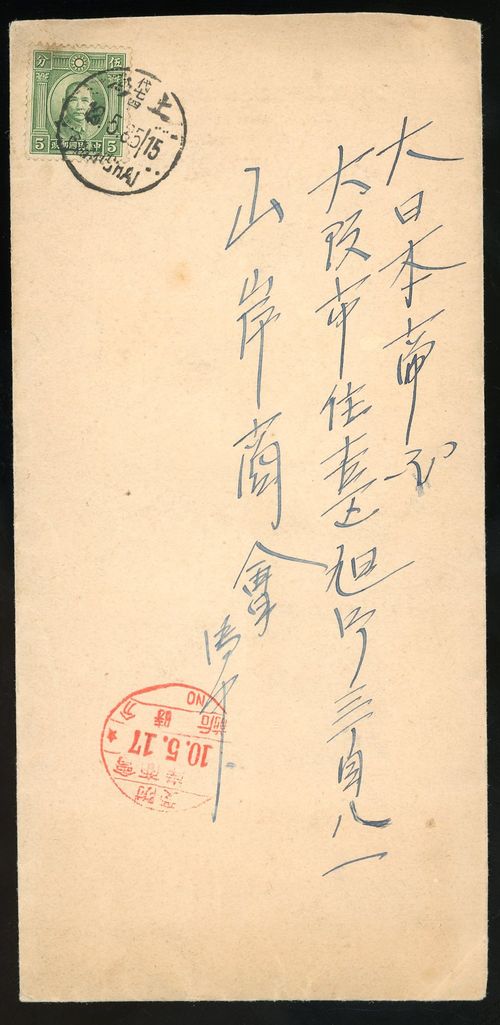 大日本帝国
大阪市住吉区旭町三百八一
山岸商會
御中
分 伍
5 5
政郵國民華中
上海
SHANGHAI
NO
時
分
10.5.17